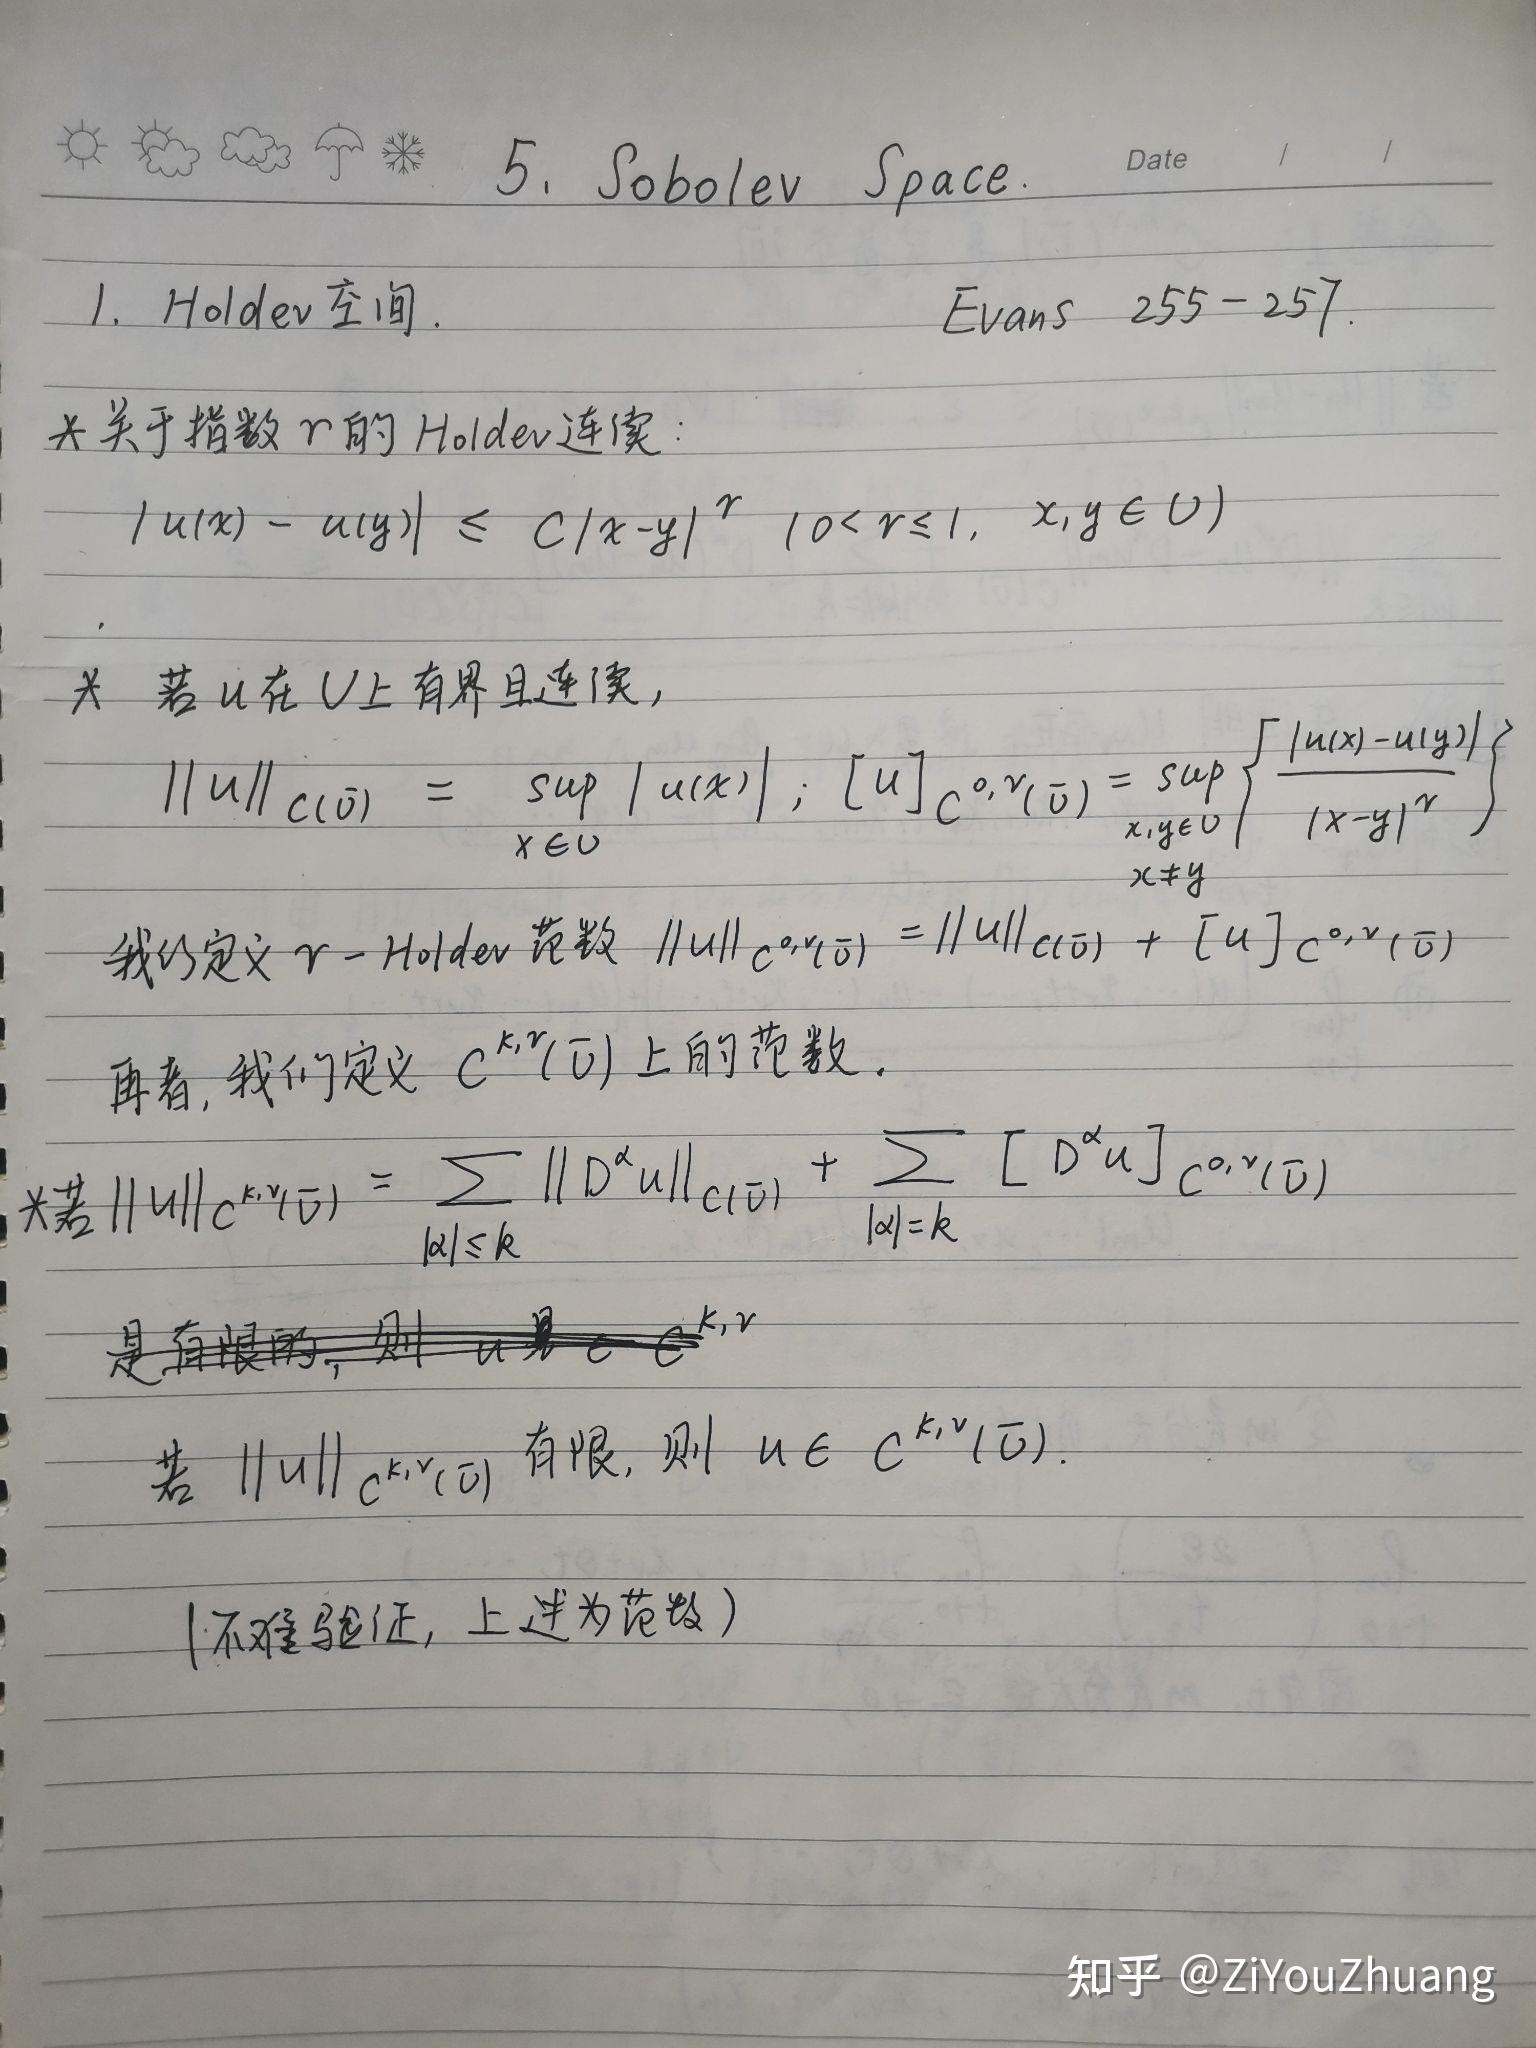 5. Sobolev Space.
Date / /
1. Holder空间.
Evans 255-257.
*关于指数r的Holder连续:
|u(x) - u(y)| ≤ C|x-y|^r (0<r≤1, x,y∈U)
* 若u在U上有界且连续,
||u||_{C(Ū)} = sup_{x∈U} |u(x)|; [u]_{C^{0,r}(Ū)} = sup_{x,y∈U x≠y} { |u(x)-u(y)| / |x-y|^r }
我们定义r-Holder范数 ||u||_{C^{0,r}(Ū)} = ||u||_{C(Ū)} + [u]_{C^{0,r}(Ū)}
再者,我们定义 C^{k,r}(Ū)上的范数.
*若||u||_{C^{k,r}(Ū)} = ∑_{|α|≤k} ||D^α u||_{C(Ū)} + ∑_{|α|=k} [D^α u]_{C^{0,r}(Ū)}
是有限的, 则 u C^{k,r}
若 ||u||_{C^{k,r}(Ū)} 有限, 则 u∈ C^{k,r}(Ū).
(不难验证, 上述为范数)
知乎 @ZiYouZhuang